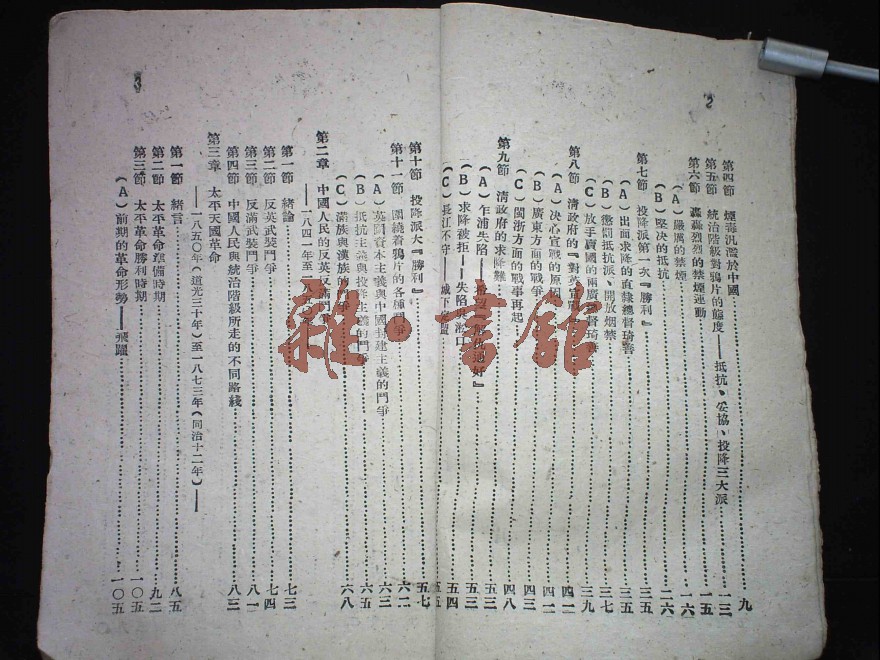 2
第四節 煙毒汎濫於中國……九
第五節 統治階級對鴉片的態度——抵抗、妥協、投降三大派……一三
第六節 轟轟烈烈的禁煙運動……一五
(A) 嚴厲的禁煙……一六
(B) 堅決的抵抗……二六
第七節 投降派第一次『勝利』……三五
(A) 出面求降的直隸總督琦善……三五
(B) 懲罰抵抗派、開放烟禁……三七
(C) 放手賣國的兩廣總督琦善……三九
第八節 清政府的『對英宣戰』……四一
(A) 决心宣戰的原因……四一
(B) 廣東方面的戰爭……四三
(C) 閩浙方面的戰事再起……四八
第九節 清政府的求降難……五三
(A) 乍浦失陷——好』……五三
(B) 求降被拒——失陷吳淞口……五四
(C) 長江不守——城下之盟……五五
第十節 投降派大『勝利』……五七
第十一節 圍繞着鴉片的各種鬥爭……六二
(A) 英國資本主義與中國封建主義的鬥爭……六三
(B) 抵抗主義與投降主義的鬥爭……六五
(C) 滿族與漢族的鬥爭……六八
第二章 中國人民的反英反滿鬥爭
——一八四一年至一八
第一節 緒論……七三
第二節 反英武裝鬥爭……七四
第三節 反滿武裝鬥爭……八一
第四節 中國人民與統治階級所走的不同路綫……八三
第三章 太平天國革命
——一八五〇年(道光三十年)至一八七三年(同治十二年)——
第一節 緒言……八五
第二節 太平革命準備時期……九二
第三節 太平革命勝利時期……一〇五
(A) 前期的革命形勢——飛躍……一〇五
雜·書館